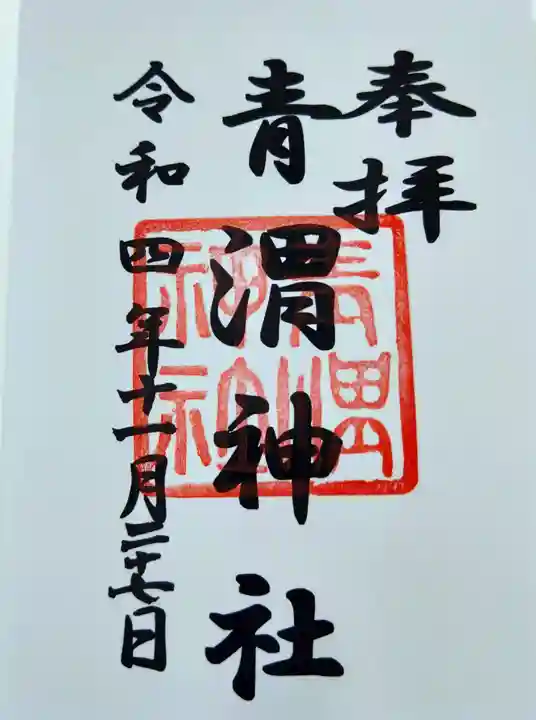 奉拝
青渭神社
令和四年十一月二十七日